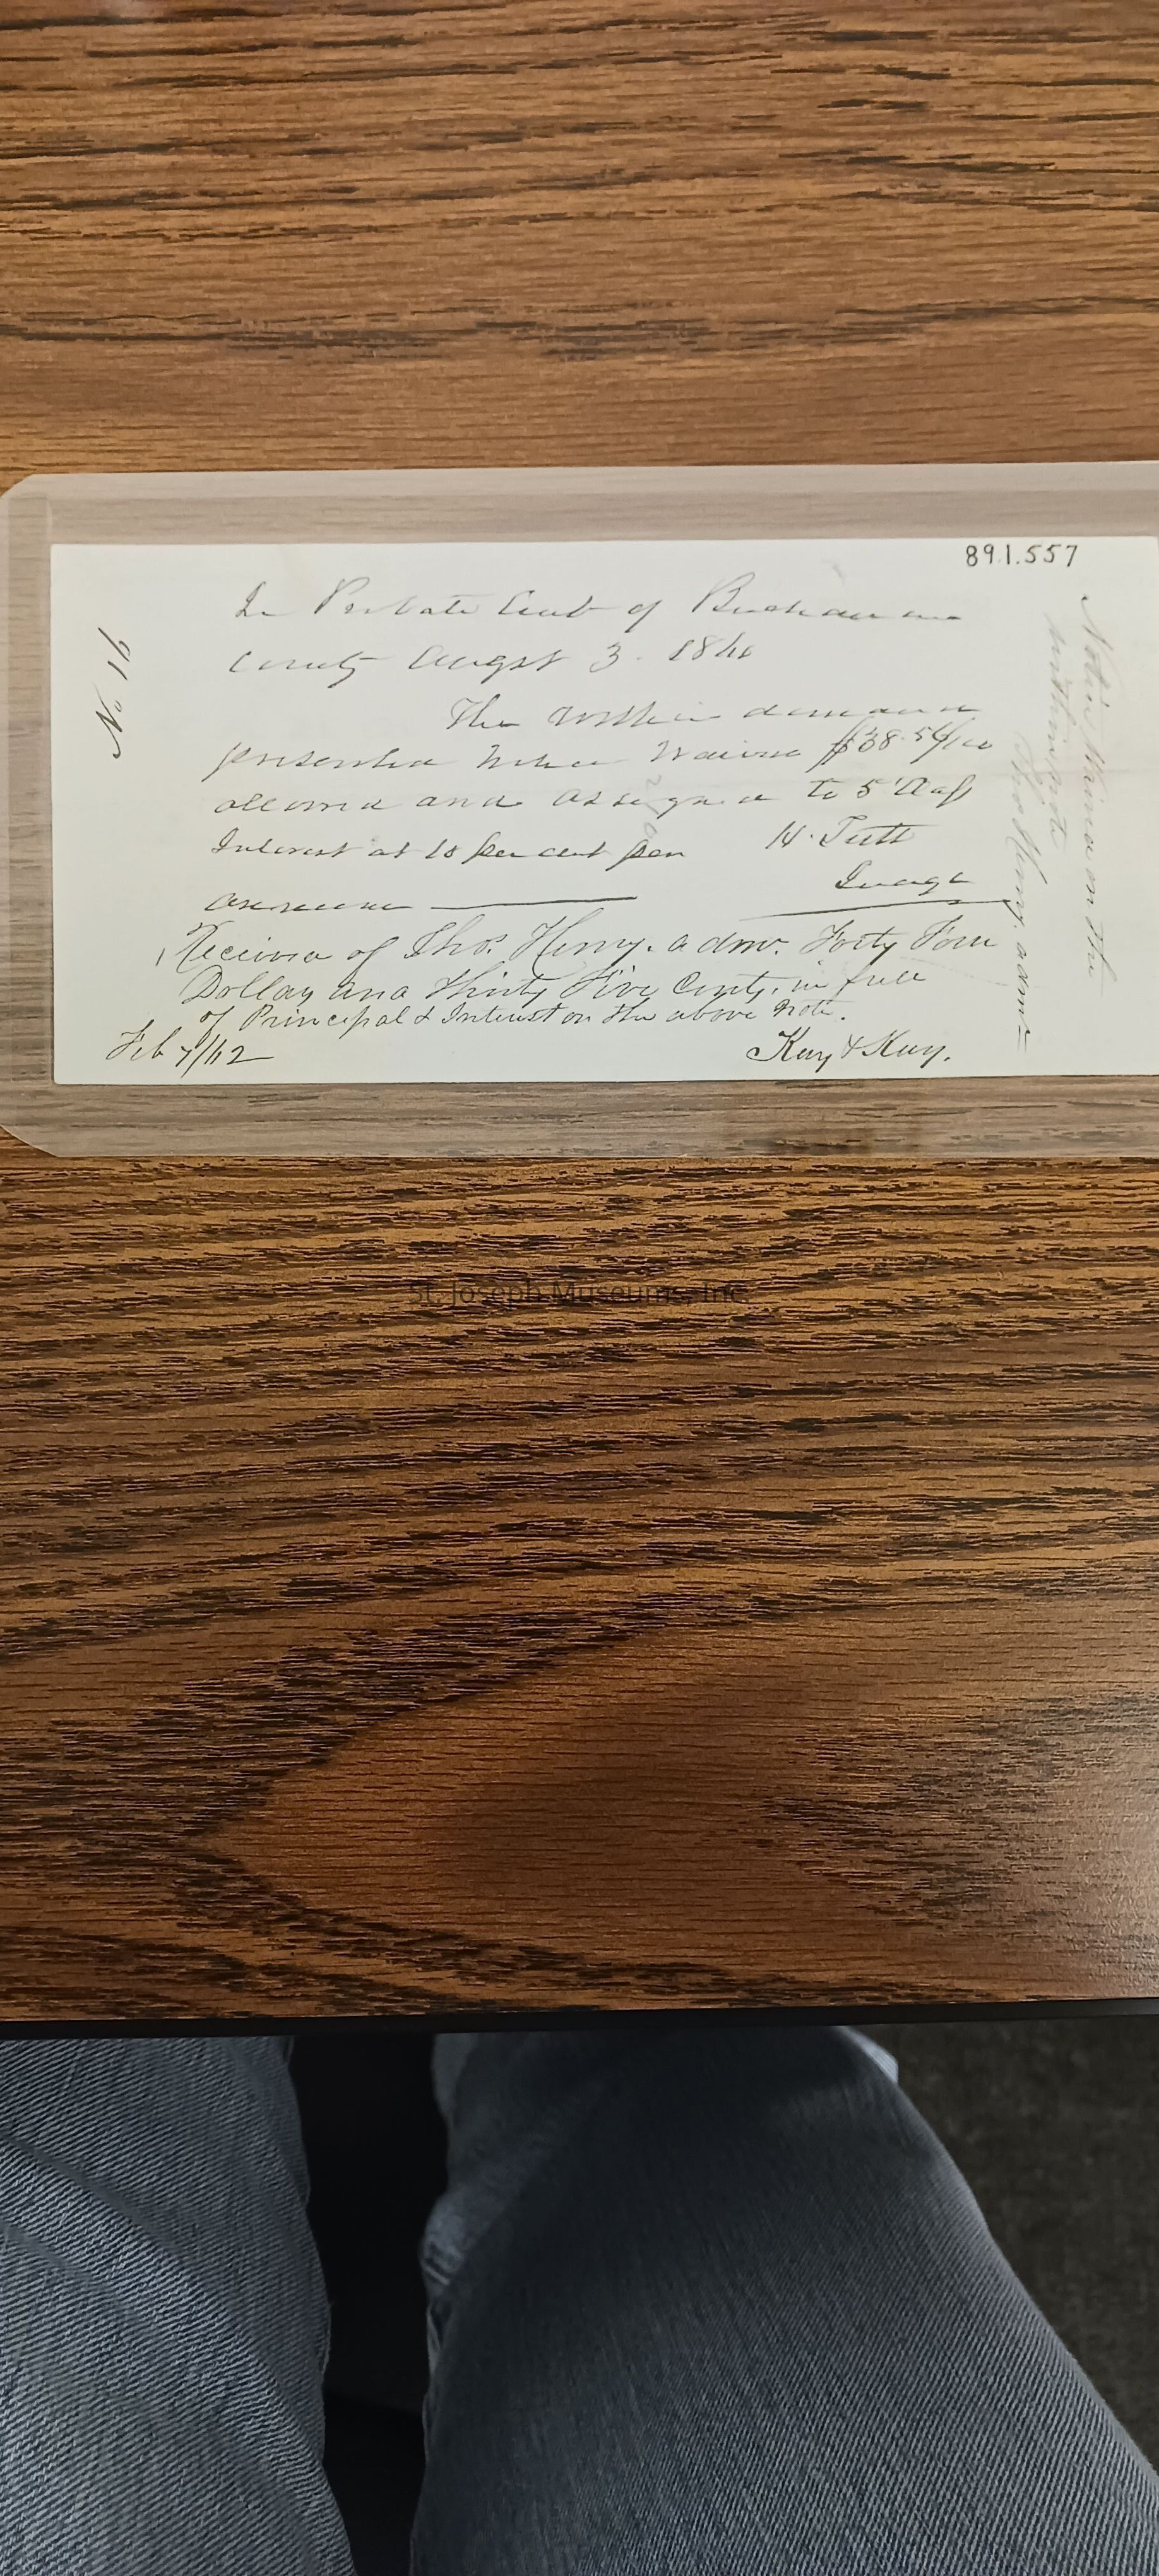 891.557
No 16
In Probate Court of Buchanan
County August 3. 1860
The within demand
presented Notice Waived $38.54/100
allowed and assigned to 5 Class
Interest at 10 per cent per
annum
H. Tutt
Judge
Received of Thos. Henry. admr. Forty Four
Dollars and Thirty Five Cents, in full
of Principal & Interest on the above Note.
Feb 7/62
Kay & Kay.
Notice Waived on the
within note
Thos Henry. admr
St. Joseph Museums, Inc.